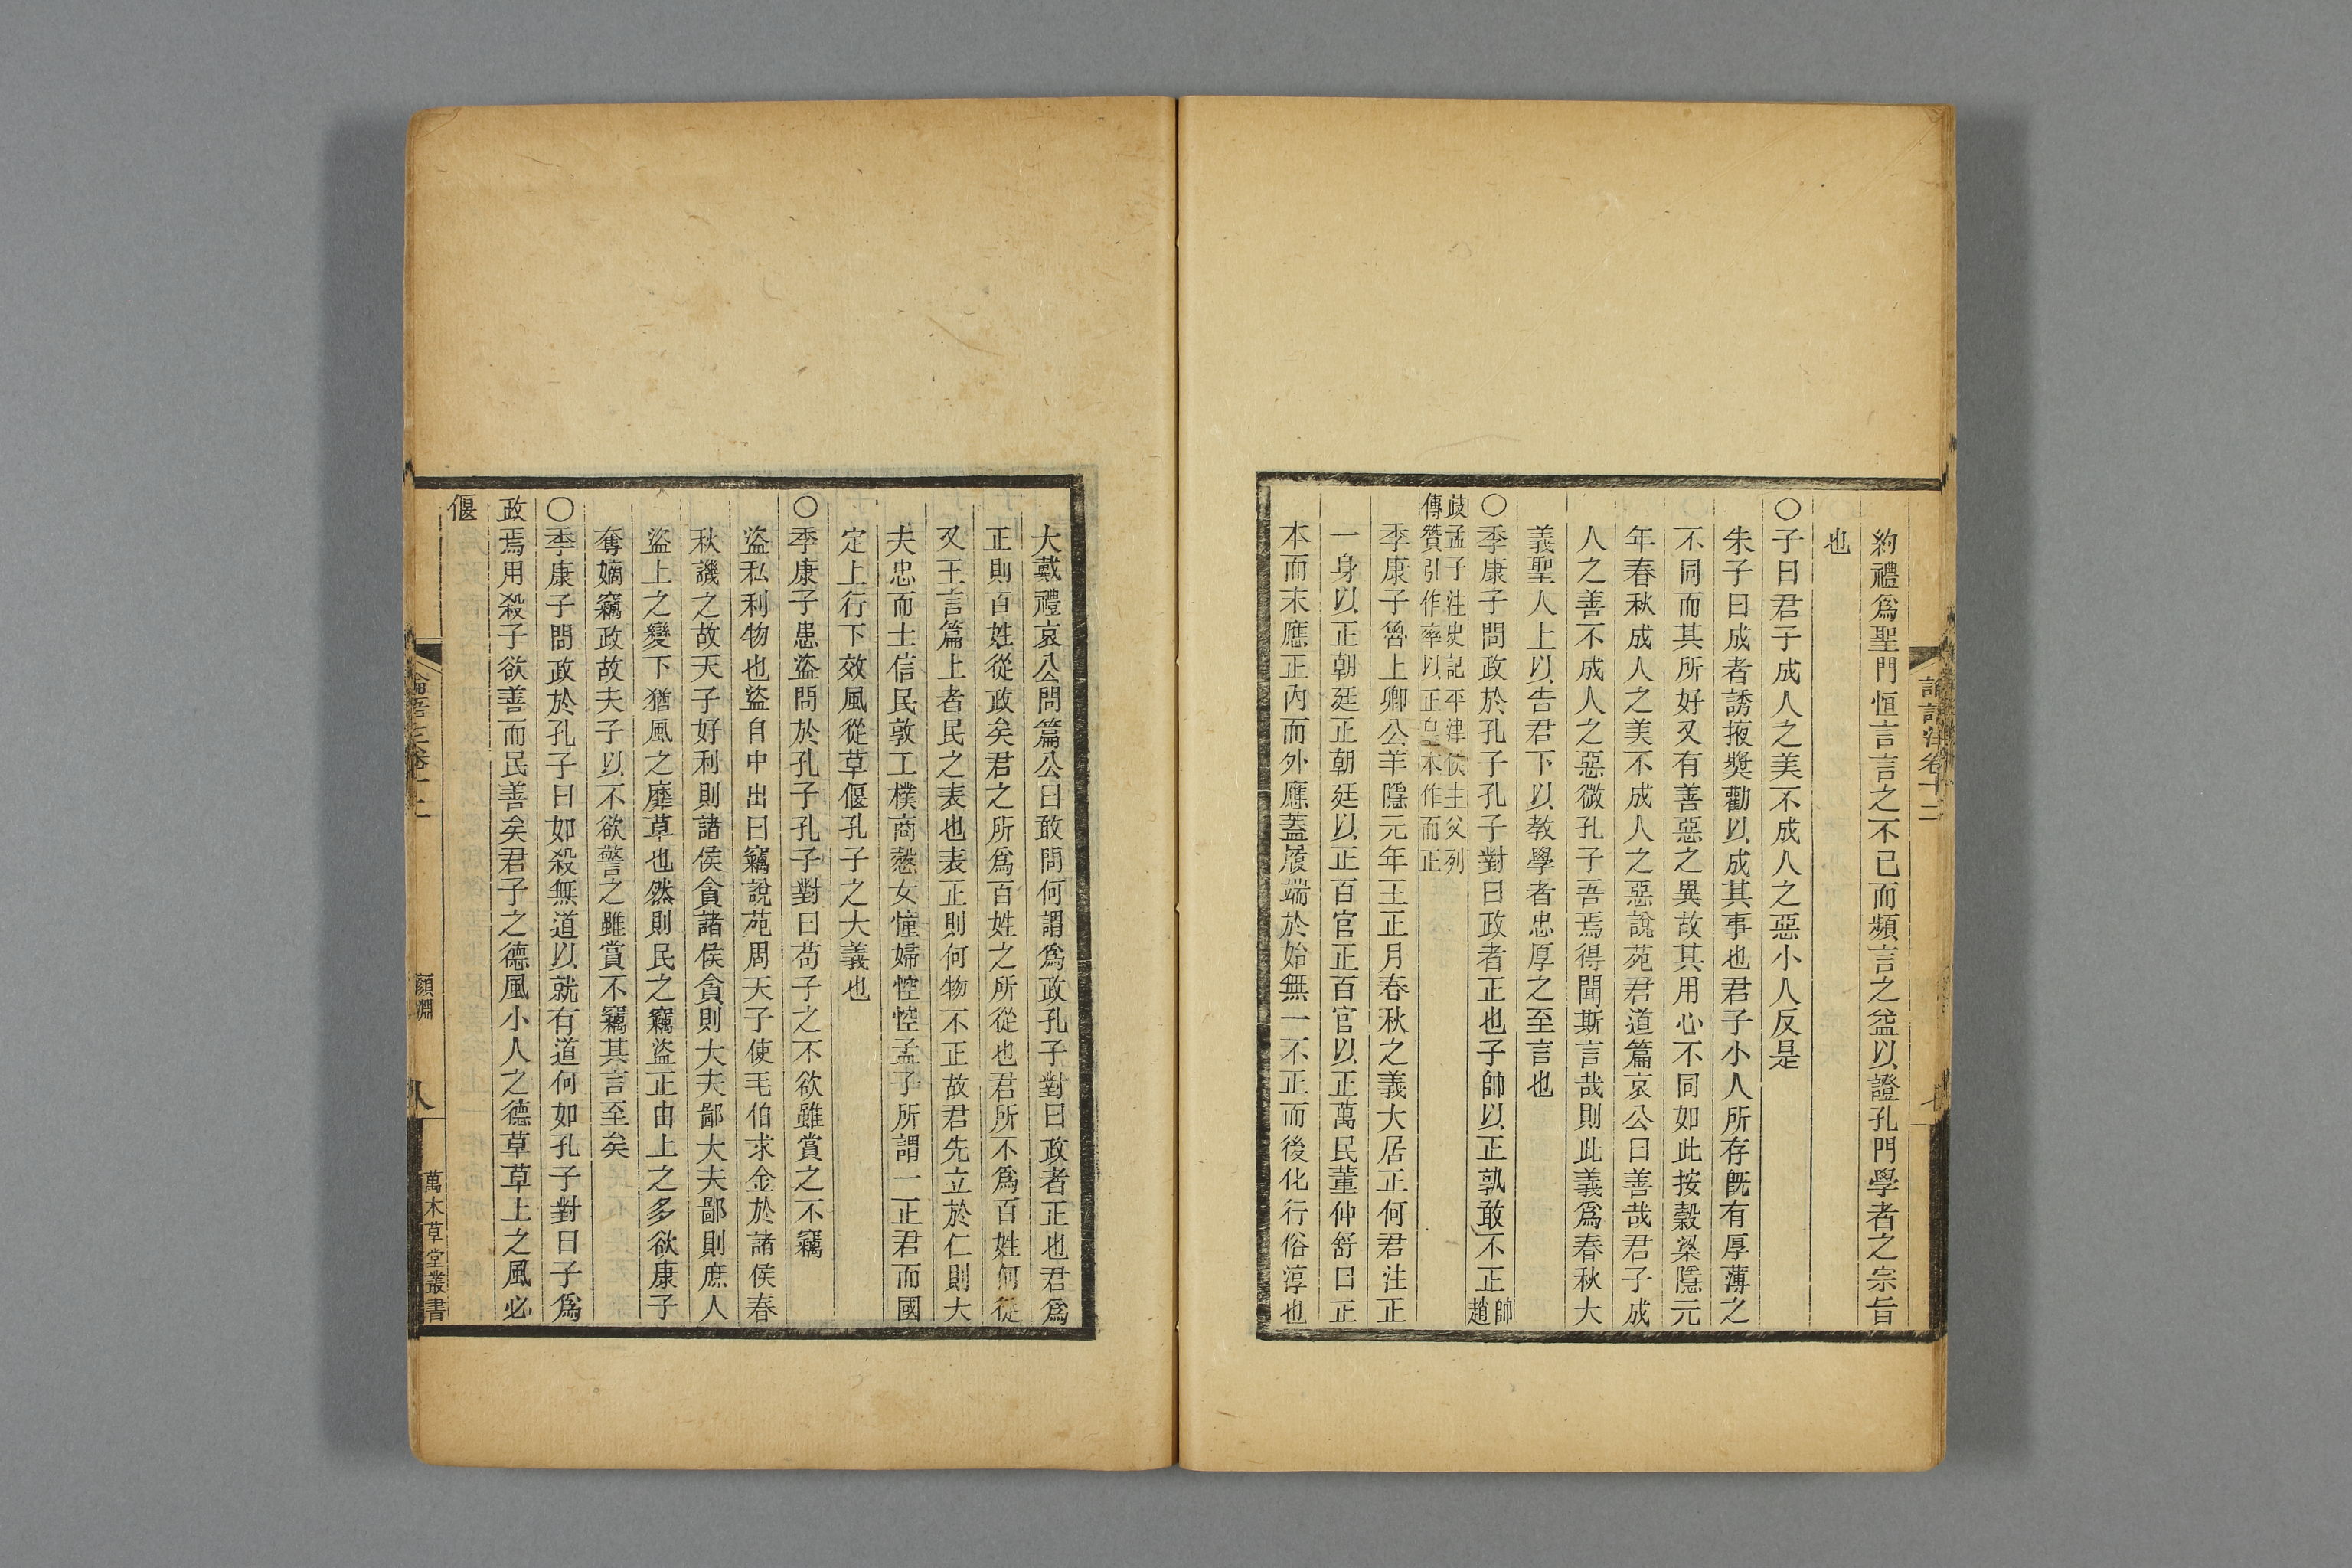 論語注卷十二
約禮爲聖門恒言言之不已而頻言之益以證孔門學者之宗旨
也
○子曰君子成人之美不成人之惡小人反是
朱子曰成者誘掖奬勸以成其事也君子小人所存既有厚薄之
不同而其所好又有善惡之異故其用心不同如此按穀梁隱元
年春秋成人之美不成人之惡說苑君道篇哀公曰善哉君子成
人之善不成人之惡微孔子吾焉得聞斯言哉則此義爲春秋大
義聖人上以告君下以教學者忠厚之至言也
○季康子問政於孔子孔子對曰政者正也子帥以正孰敢不正帥趙
歧孟子注史記平津侯主父列
傳贊引作率以正皇本作而正
季康子魯上卿公羊隱元年王正月春秋之義大居正何君注正
一身以正朝廷正朝廷以正百官正百官以正萬民董仲舒曰正
本而末應正內而外應蓋履端於始無一不正而後化行俗淳也
大戴禮哀公問篇公曰敢問何謂爲政孔子對曰政者正也君爲
正則百姓從政矣君之所爲百姓之所從也君所不爲百姓何從
又王言篇上者民之表也表正則何物不正故君先立於仁則大
夫忠而士信民敦工樸商愨女憧婦悾悾孟子所謂一正君而國
定上行下效風從草偃孔子之大義也
○季康子患盜問於孔子孔子對曰苟子之不欲雖賞之不竊
盜私利物也盜自中出曰竊說苑周天子使毛伯求金於諸侯春
秋譏之故天子好利則諸侯貪諸侯貪則大夫鄙大夫鄙則庶人
盜上之變下猶風之靡草也然則民之竊盜正由上之多欲康子
奪嫡竊政故夫子以不欲警之雖賞不竊其言至矣
○季康子問政於孔子曰如殺無道以就有道何如孔子對曰子爲
政焉用殺子欲善而民善矣君子之德風小人之德草草上之風必
偃
顏淵
八
萬木草堂叢書